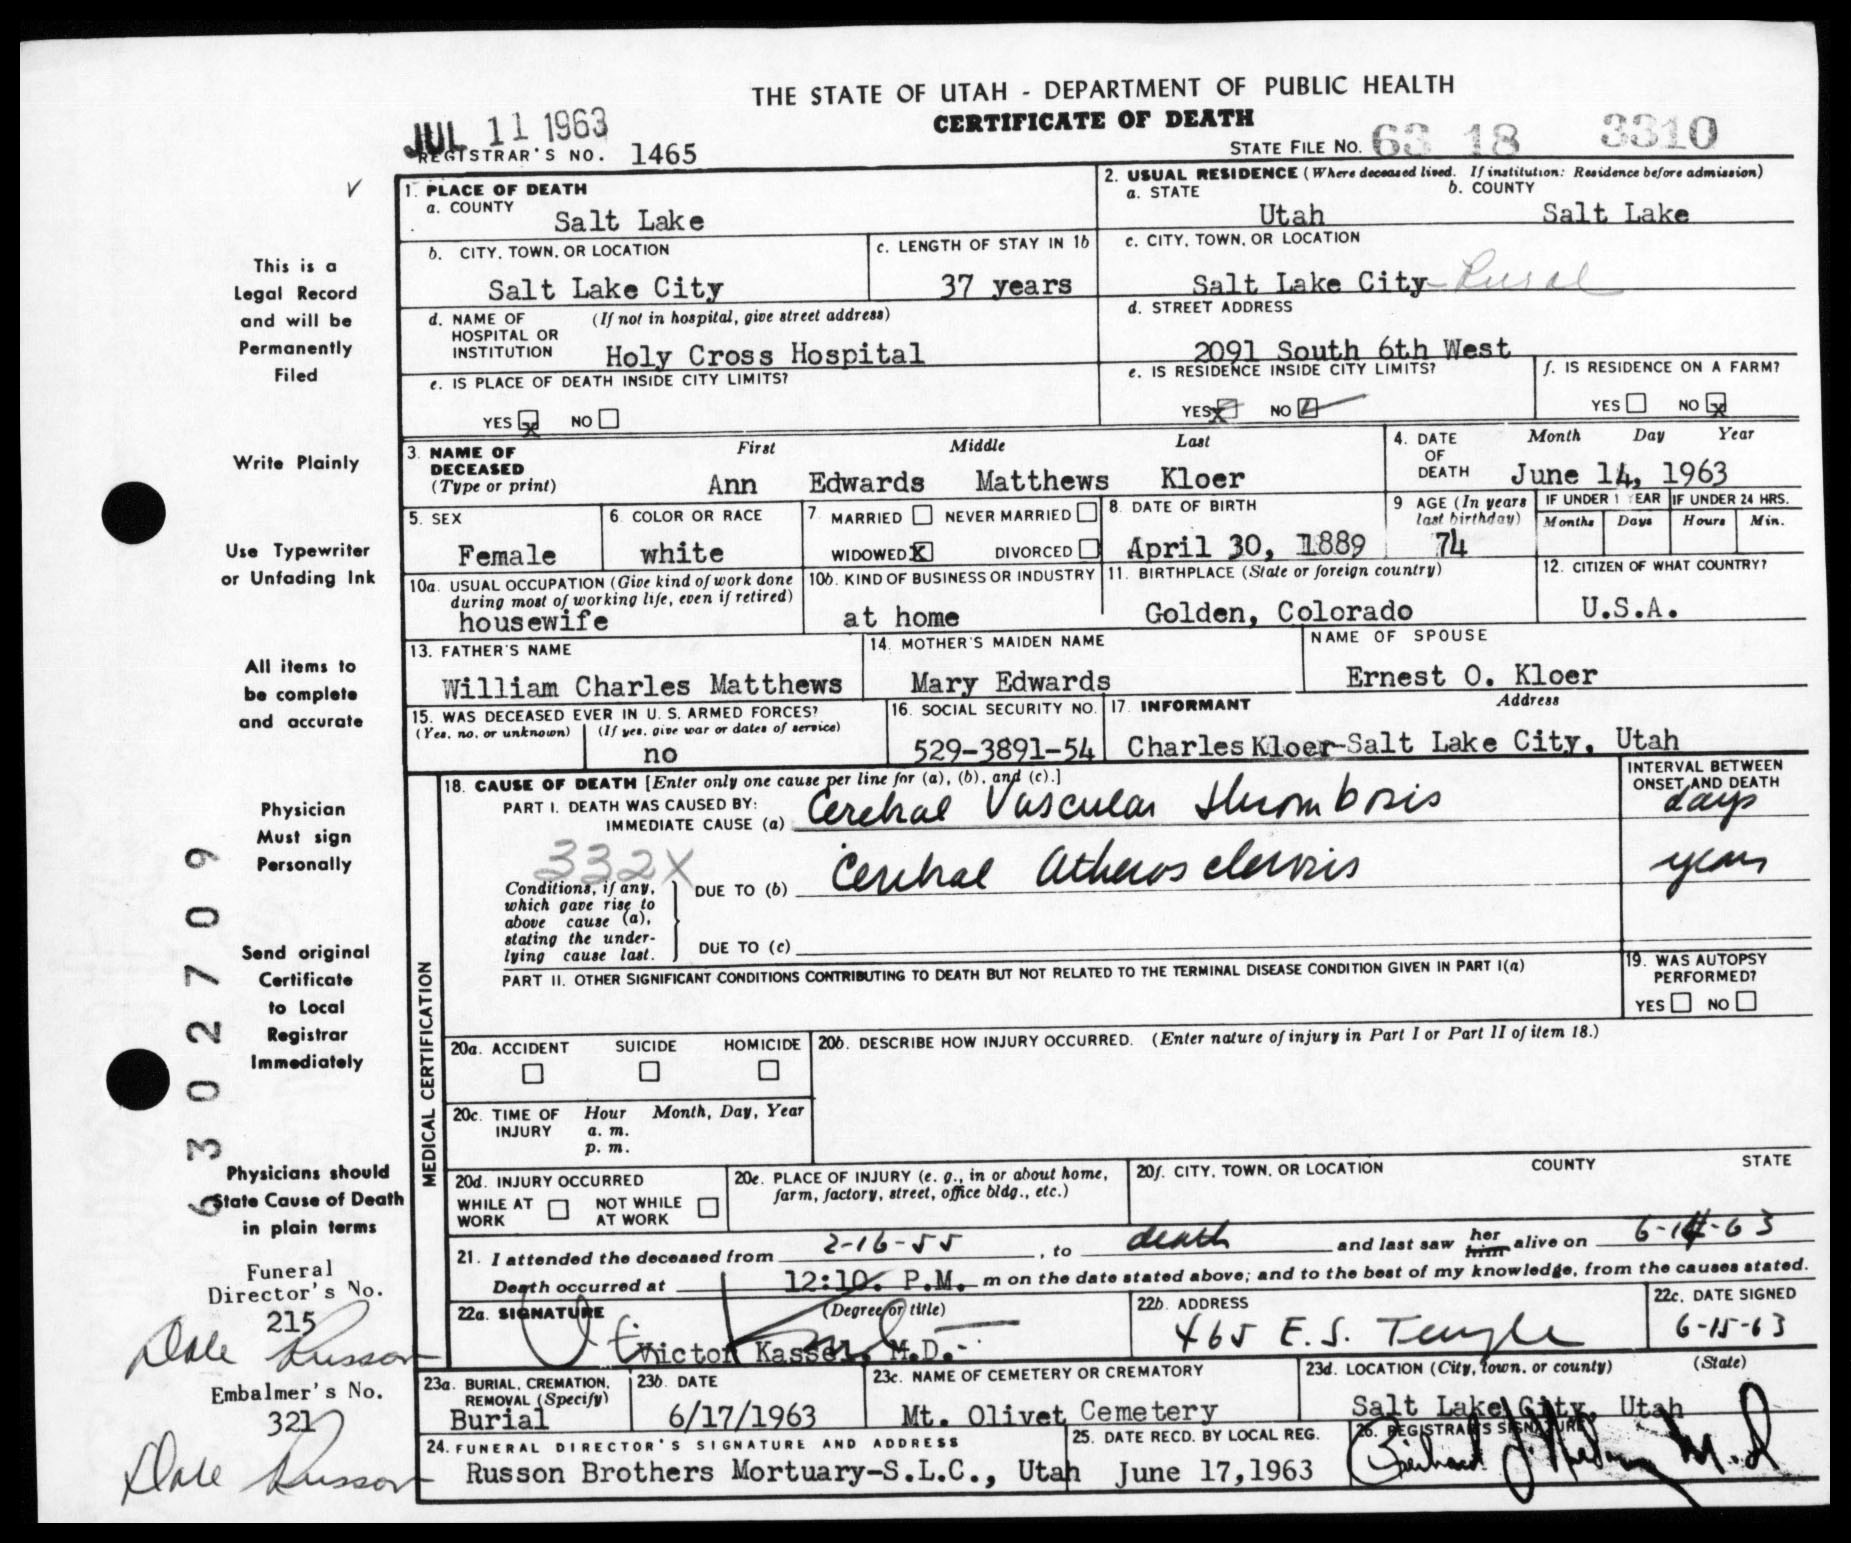 THE STATE OF UTAH - DEPARTMENT OF PUBLIC HEALTH
CERTIFICATE OF DEATH
JUL 11 1963
REGISTRAR'S NO. 1465
STATE FILE NO. 63 18 3310
1. PLACE OF DEATH
a. COUNTY
Salt Lake
2. USUAL RESIDENCE (Where deceased lived. If institution: Residence before admission)
a. STATE b. COUNTY
Utah Salt Lake
b. CITY, TOWN, OR LOCATION
Salt Lake City
c. LENGTH OF STAY IN 1b
37 years
c. CITY, TOWN, OR LOCATION
Salt Lake City - Rural
d. NAME OF HOSPITAL OR INSTITUTION (If not in hospital, give street address)
Holy Cross Hospital
d. STREET ADDRESS
2091 South 6th West
e. IS PLACE OF DEATH INSIDE CITY LIMITS?
YES X NO
e. IS RESIDENCE INSIDE CITY LIMITS?
YES X NO
f. IS RESIDENCE ON A FARM?
YES NO X
3. NAME OF DECEASED (Type or print)
First Middle Last
Ann Edwards Matthews Kloer
4. DATE OF DEATH Month Day Year
June 14, 1963
5. SEX
Female
6. COLOR OR RACE
white
7. MARRIED NEVER MARRIED
WIDOWED X DIVORCED
8. DATE OF BIRTH
April 30, 1889
9 AGE (In years last birthday)
74
IF UNDER 1 YEAR IF UNDER 24 HRS.
Months Days Hours Min.
10a. USUAL OCCUPATION (Give kind of work done during most of working life, even if retired)
housewife
10b. KIND OF BUSINESS OR INDUSTRY
at home
11. BIRTHPLACE (State or foreign country)
Golden, Colorado
12. CITIZEN OF WHAT COUNTRY?
U.S.A.
13. FATHER'S NAME
William Charles Matthews
14. MOTHER'S MAIDEN NAME
Mary Edwards
NAME OF SPOUSE
Ernest O. Kloer
15. WAS DECEASED EVER IN U. S. ARMED FORCES?
(Yes, no, or unknown) (If yes, give war or dates of service)
no
16. SOCIAL SECURITY NO.
529-3891-54
17. INFORMANT Address
Charles Kloer-Salt Lake City, Utah
18. CAUSE OF DEATH [Enter only one cause per line for (a), (b), and (c).]
PART I. DEATH WAS CAUSED BY:
IMMEDIATE CAUSE (a) Cerebral Vascular thrombosis
INTERVAL BETWEEN ONSET AND DEATH
days
332X
Conditions, if any, which gave rise to above cause (a), stating the underlying cause last.
DUE TO (b) Cerebral Atherosclerosis
years
DUE TO (c)
PART II. OTHER SIGNIFICANT CONDITIONS CONTRIBUTING TO DEATH BUT NOT RELATED TO THE TERMINAL DISEASE CONDITION GIVEN IN PART I(a)
19. WAS AUTOPSY PERFORMED?
YES NO
MEDICAL CERTIFICATION
20a. ACCIDENT SUICIDE HOMICIDE
20b. DESCRIBE HOW INJURY OCCURRED. (Enter nature of injury in Part I or Part II of item 18.)
20c. TIME OF INJURY Hour Month, Day, Year
a. m.
p. m.
20d. INJURY OCCURRED
WHILE AT WORK NOT WHILE AT WORK
20e. PLACE OF INJURY (e. g., in or about home, farm, factory, street, office bldg., etc.)
20f. CITY, TOWN, OR LOCATION COUNTY STATE
21. I attended the deceased from 2-16-55, to death and last saw her him alive on 6-14-63
Death occurred at 12:10. P.M. m on the date stated above; and to the best of my knowledge, from the causes stated.
22a. SIGNATURE (Degree or title)
Victor Kassel, M.D.
22b. ADDRESS
465 E. S. Temple
22c. DATE SIGNED
6-15-63
23a. BURIAL, CREMATION, REMOVAL (Specify)
Burial
23b. DATE
6/17/1963
23c. NAME OF CEMETERY OR CREMATORY
Mt. Olivet Cemetery
23d. LOCATION (City, town, or county) (State)
Salt Lake City, Utah
24. FUNERAL DIRECTOR'S SIGNATURE AND ADDRESS
Russon Brothers Mortuary-S.L.C., Utah
25. DATE RECD. BY LOCAL REG.
June 17, 1963
26. REGISTRAR'S SIGNATURE
M.D
This is a
Legal Record
and will be
Permanently
Filed
Write Plainly
Use Typewriter
or Unfading Ink
All items to
be complete
and accurate
Physician
Must sign
Personally
Send original
Certificate
to Local
Registrar
Immediately
Physicians should
State Cause of Death
in plain terms
6302709
Funeral
Director's No.
215
Dale Russon
Embalmer's No.
321
Dale Russon